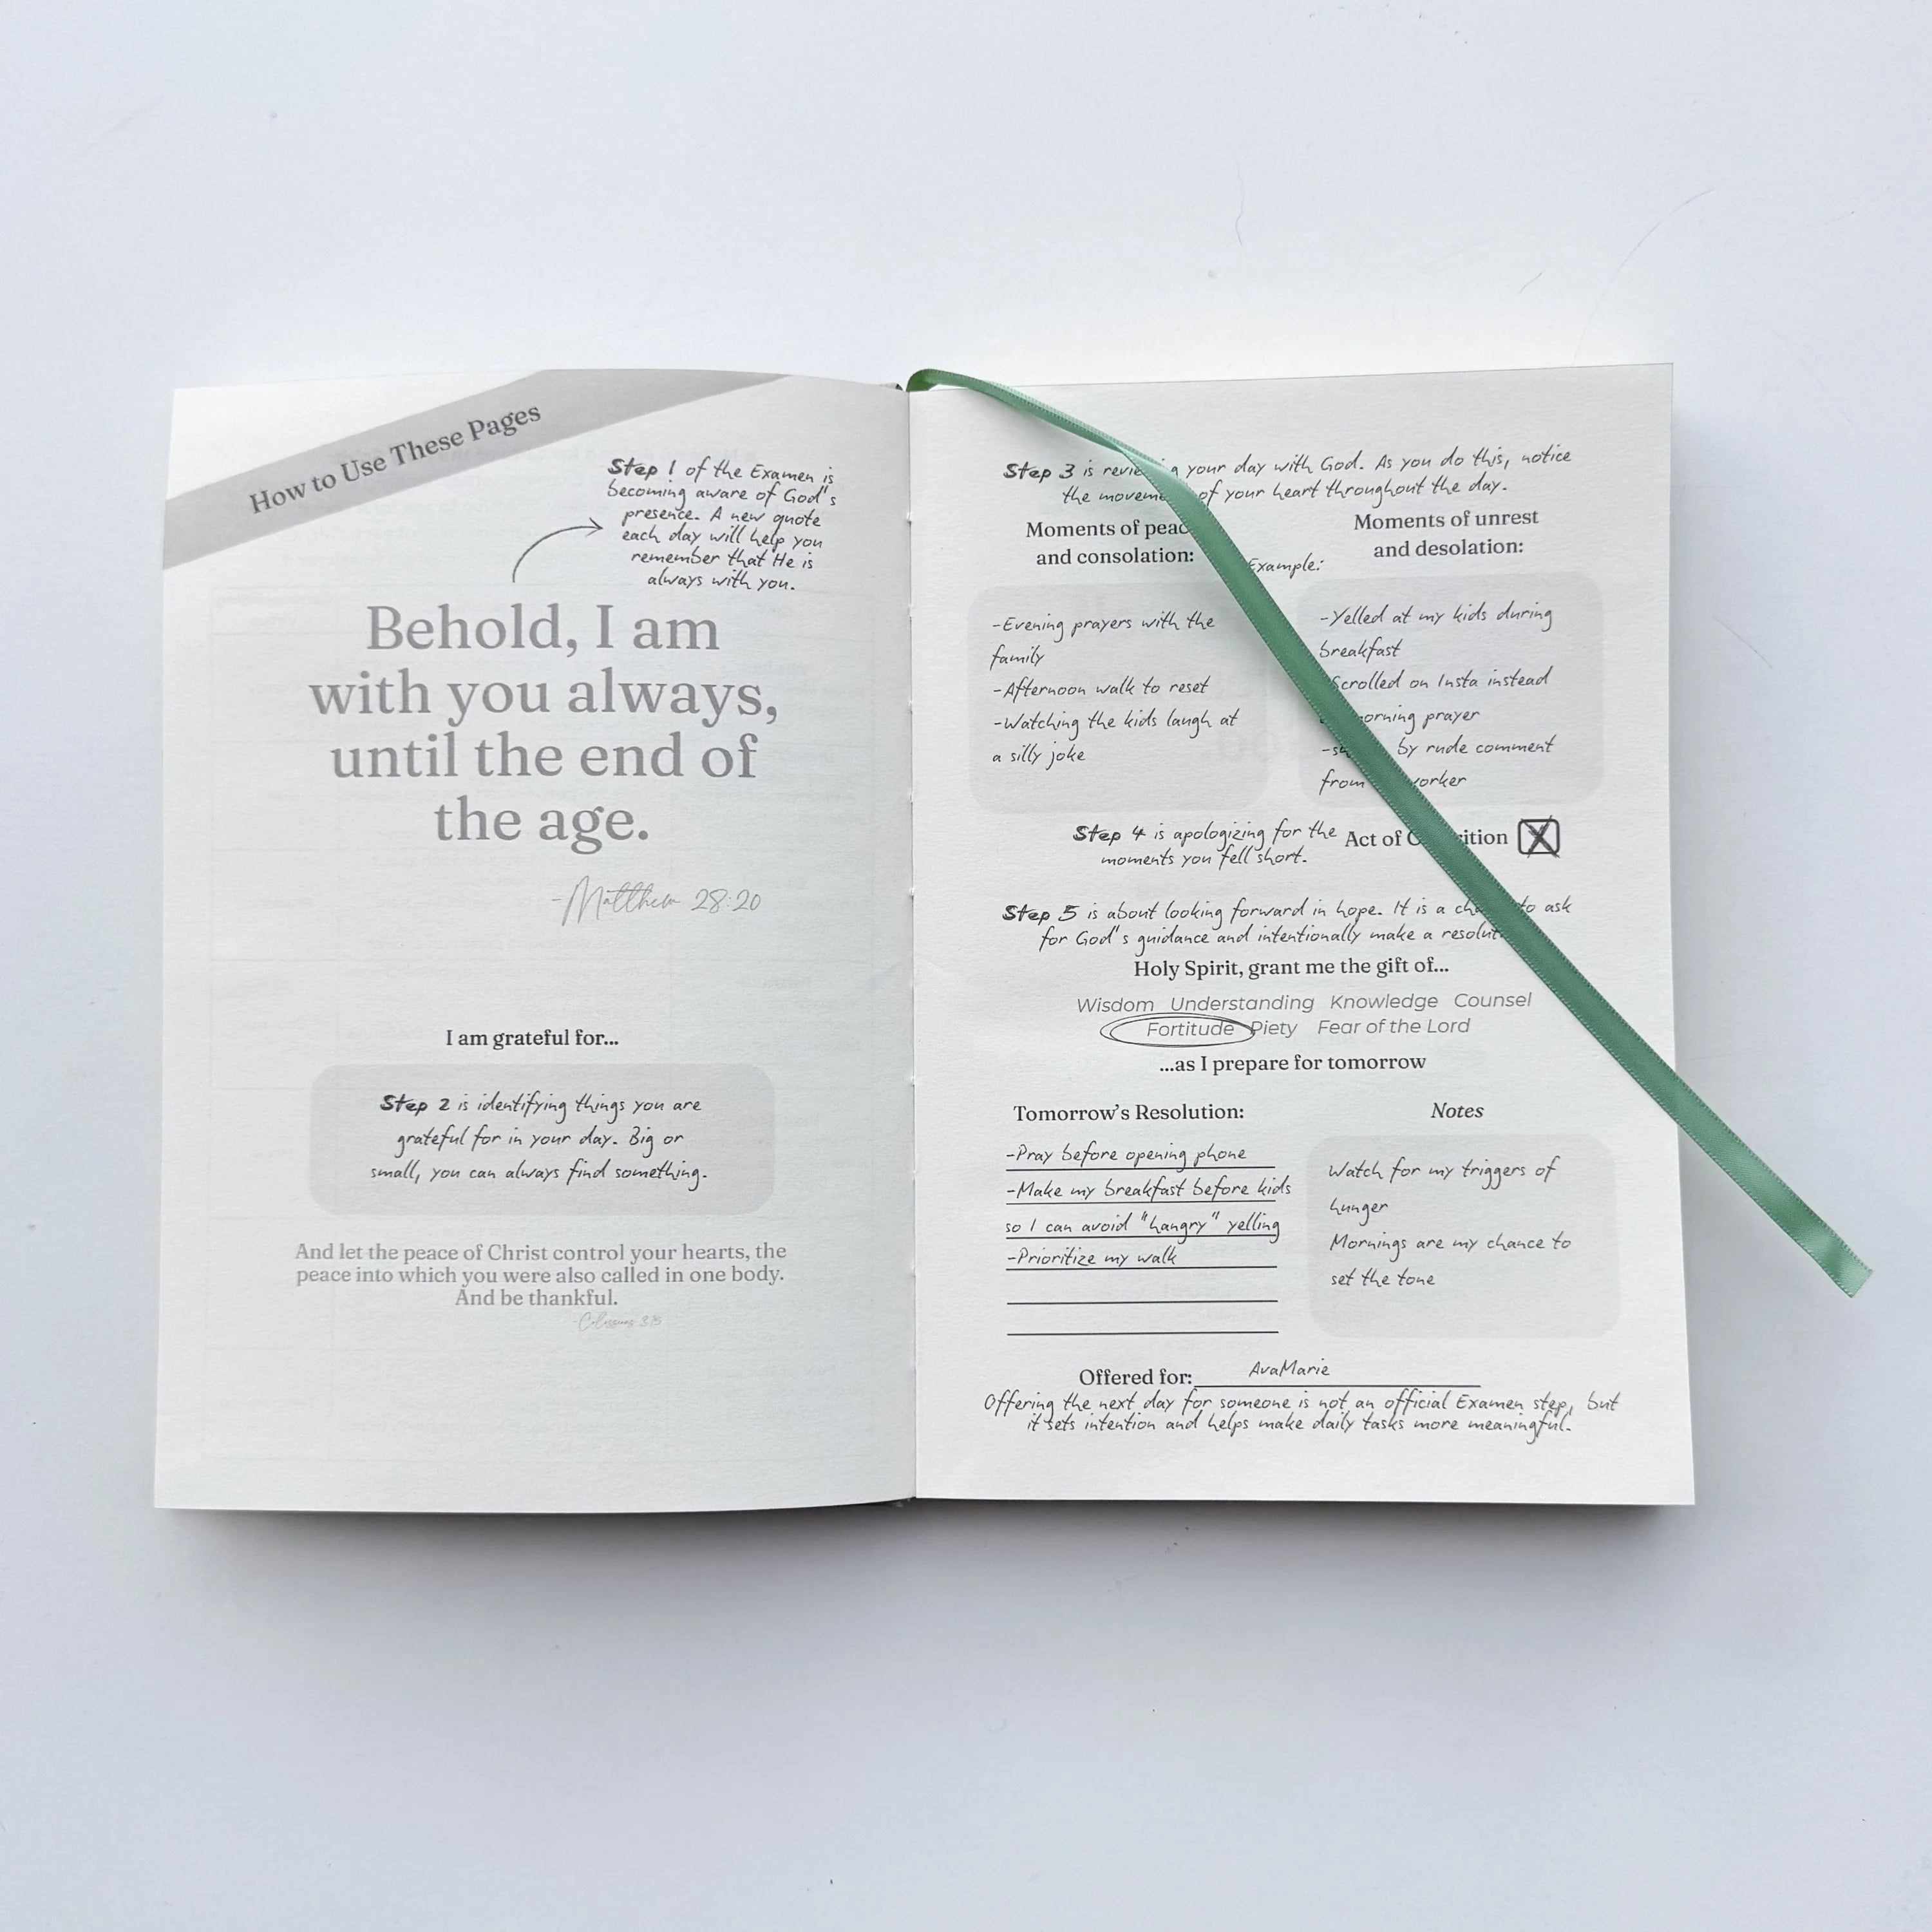 How to Use These Pages
Step 1 of the Examen is
becoming aware of God's
presence. A new quote
each day will help you
remember that He is
always with you.
Behold, I am
with you always,
until the end of
the age.
-Matthew 28:20
I am grateful for...
Step 2 is identifying things you are
grateful for in your day. Big or
small, you can always find something.
And let the peace of Christ control your hearts, the
peace into which you were also called in one body.
And be thankful.
-Colossians 3:15
Step 3 is your day with God. As you do this, notice
the of your heart throughout the day.
Moments of
and consolation:
Example:
Moments of unrest
and desolation:
-Evening prayers with the
family
-Afternoon walk to reset
-Watching the kids laugh at
a silly joke
-Yelled at my kids during
breakfast
Scrolled on Insta instead
prayer
by rude comment
from
Step 4 is apologizing for the
moments you fell short.
Act of
X
Step 5 is about looking forward in hope. It is a to ask
for God's guidance and intentionally make a
Holy Spirit, grant me the gift of...
Wisdom Understanding Knowledge Counsel
Fortitude Piety Fear of the Lord
...as I prepare for tomorrow
Tomorrow's Resolution:
-Pray before opening phone
-Make my breakfast before kids
so I can avoid "hangry" yelling
-Prioritize my walk
Notes
Watch for my triggers of
hunger
Mornings are my chance to
set the tone
Offered for: AvaMarie
Offering the next day for someone is not an official Examen step, but
it sets intention and helps make daily tasks more meaningful.